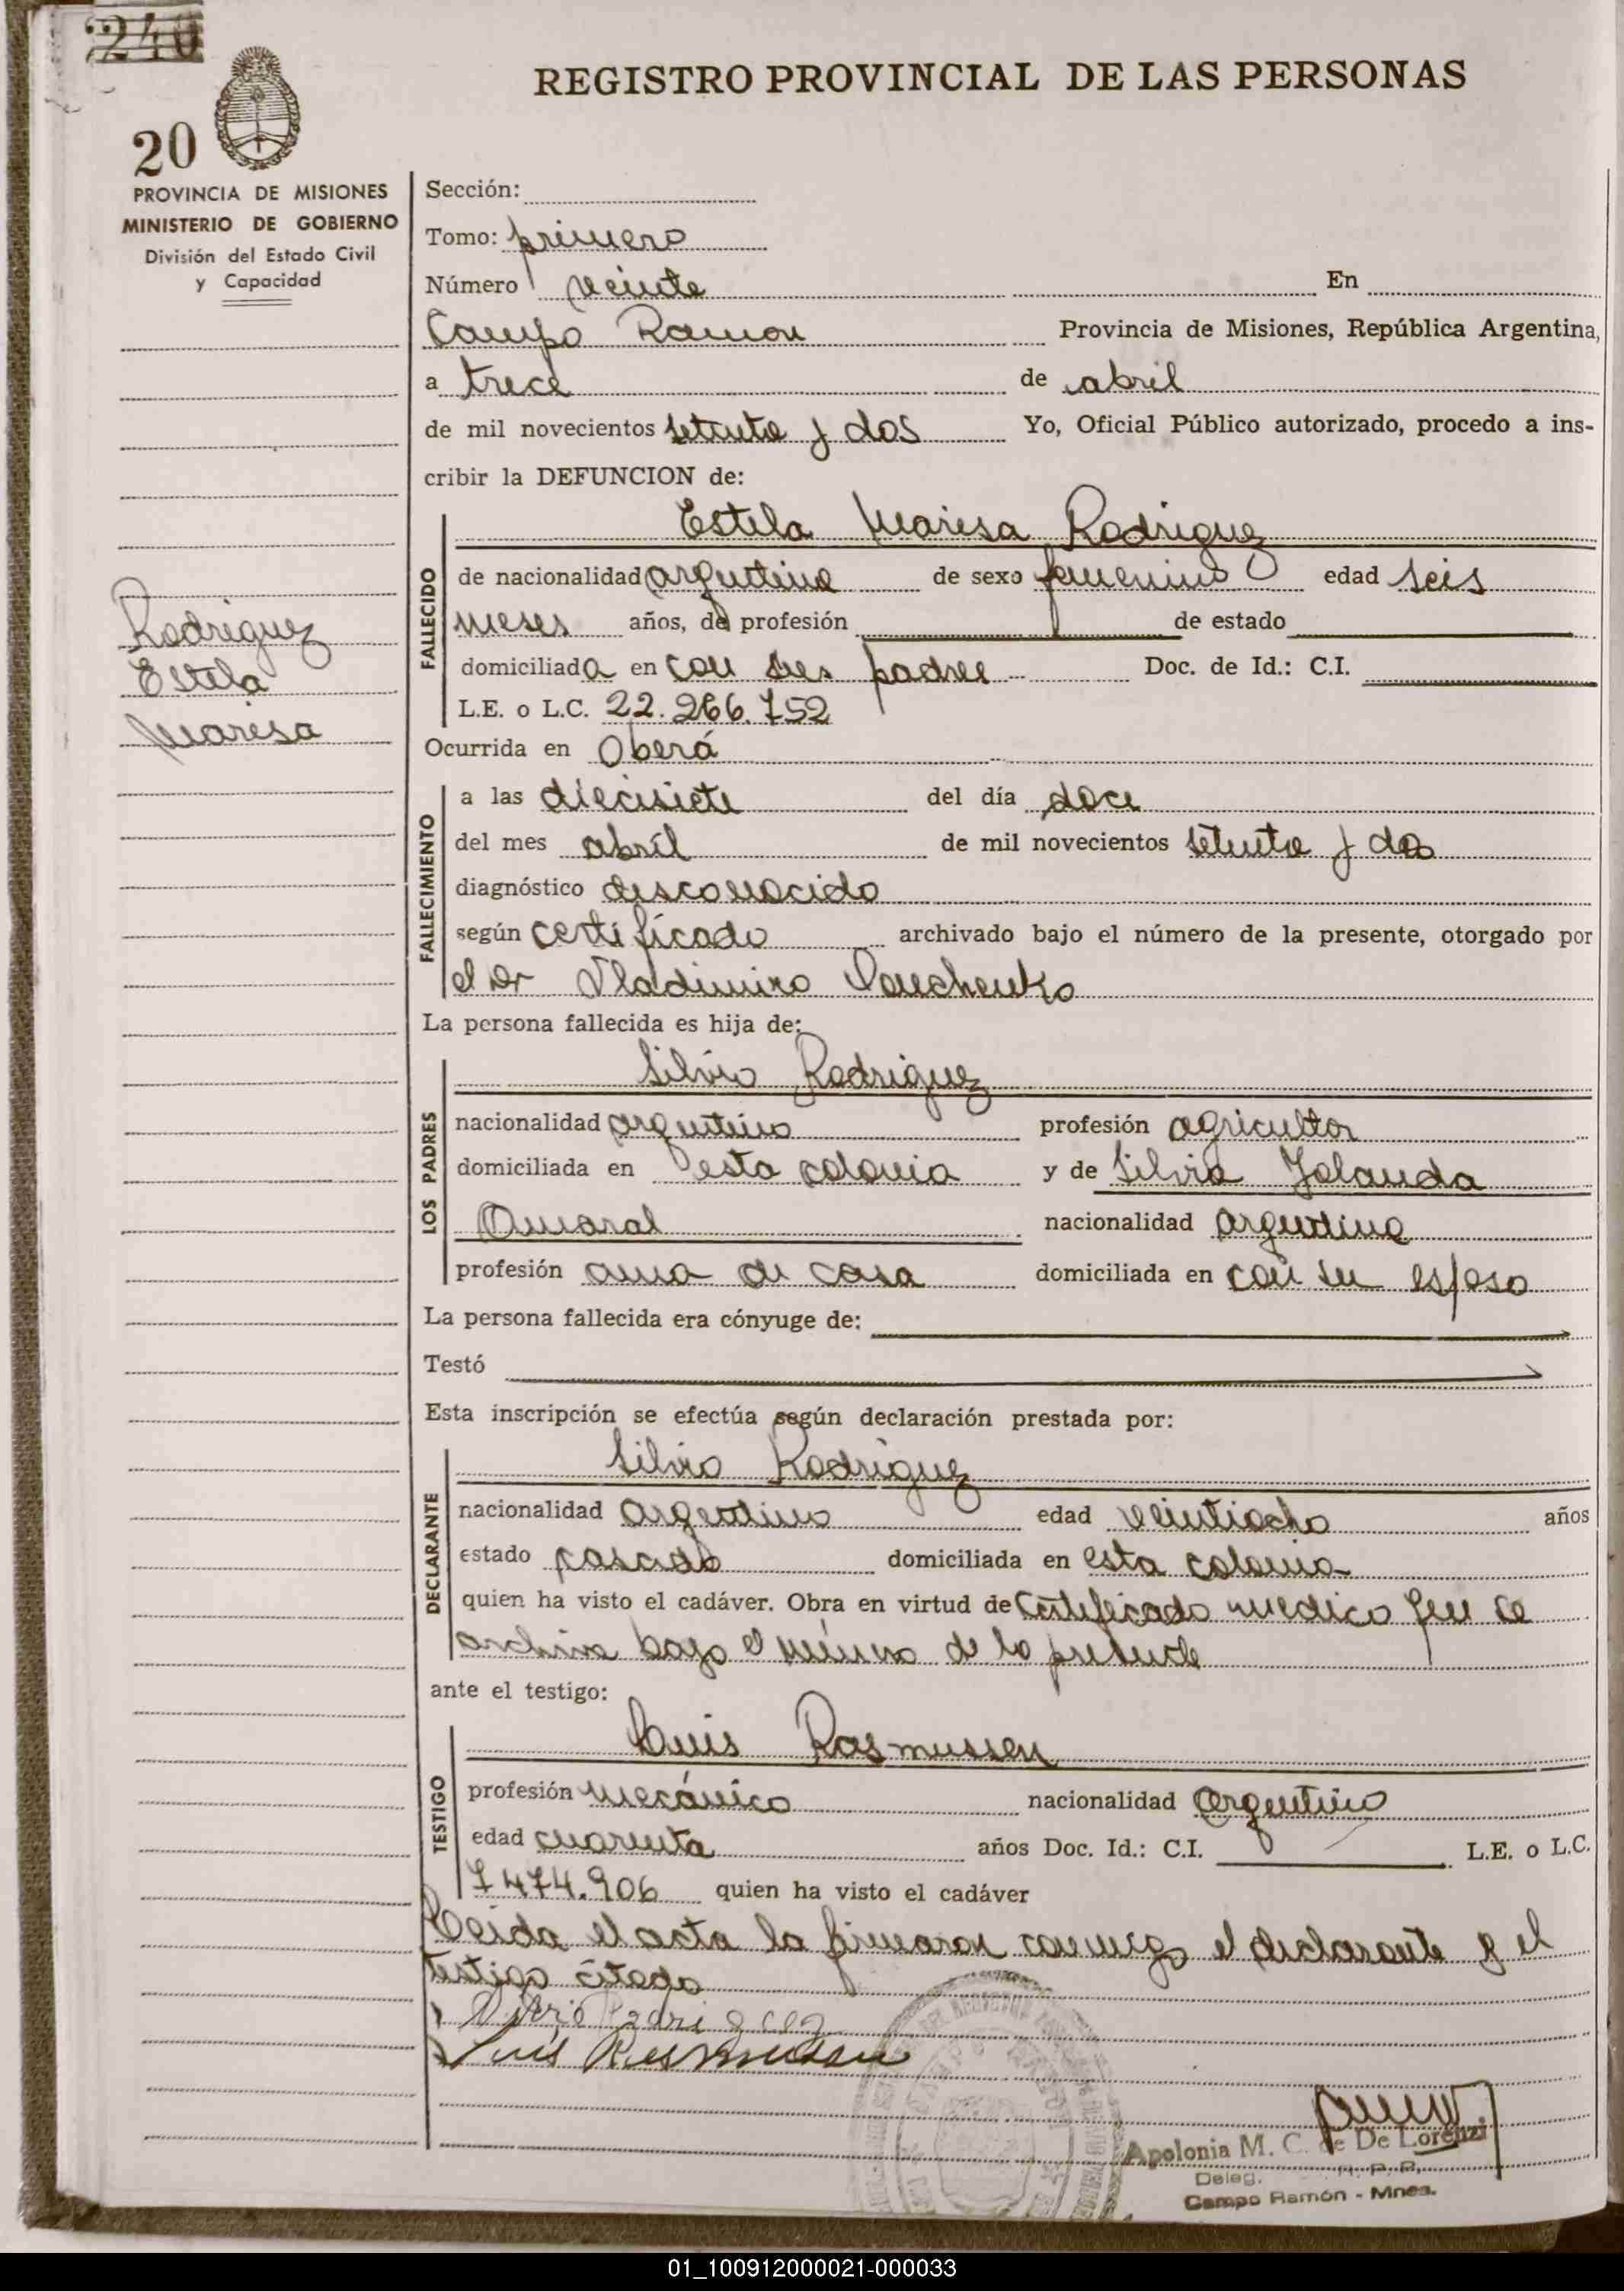 240
20
REGISTRO PROVINCIAL DE LAS PERSONAS
PROVINCIA DE MISIONES
MINISTERIO DE GOBIERNO
División del Estado Civil
y Capacidad
Rodriguez
Estela
Maresa
Sección:
Tomo: primero
Número veinte En
Campo Ramon Provincia de Misiones, República Argentina,
a trece de abril
de mil novecientos setenta y dos Yo, Oficial Público autorizado, procedo a ins-
cribir la DEFUNCION de:
FALLECIDO
Estela Maresa Rodriguez
de nacionalidad argentina de sexo femenino edad seis
meses años, de profesión de estado
domiciliada en con sus padres Doc. de Id.: C.I.
L.E. o L.C. 22.266.752
Ocurrida en Oberá
FALLECIMIENTO
a las diecisiete del día doce
del mes abril de mil novecientos setenta y dos
diagnóstico desconocido
según certificado archivado bajo el número de la presente, otorgado por
el Dr Vladimiro
La persona fallecida es hija de:
LOS PADRES
Silvio Rodriguez
nacionalidad argentino profesión agricultor
domiciliada en esta colonia y de Silvia Yolanda
Amaral nacionalidad argentina
profesión ama de casa domiciliada en con su esposo
La persona fallecida era cónyuge de:
Testó
Esta inscripción se efectúa según declaración prestada por:
DECLARANTE
Silvio Rodriguez
nacionalidad argentino edad veintiocho años
estado casado domiciliada en esta colonia
quien ha visto el cadáver. Obra en virtud de certificado medico que se
archiva bajo el número de la presente
ante el testigo:
TESTIGO
Luis Rasmussen
profesión mecánico nacionalidad argentino
edad cuarenta años Doc. Id.: C.I. L.E. o L.C.
7474.906 quien ha visto el cadáver
Leida el acta la firmaron conmigo el declarante y el
testigo citado
Silvio Rodriguez
Luis Rasmussen
Apolonia M. C. de De Lorenzi
Deleg. R. P. P.
Campo Ramón - Mnes.
01_100912000021-000033